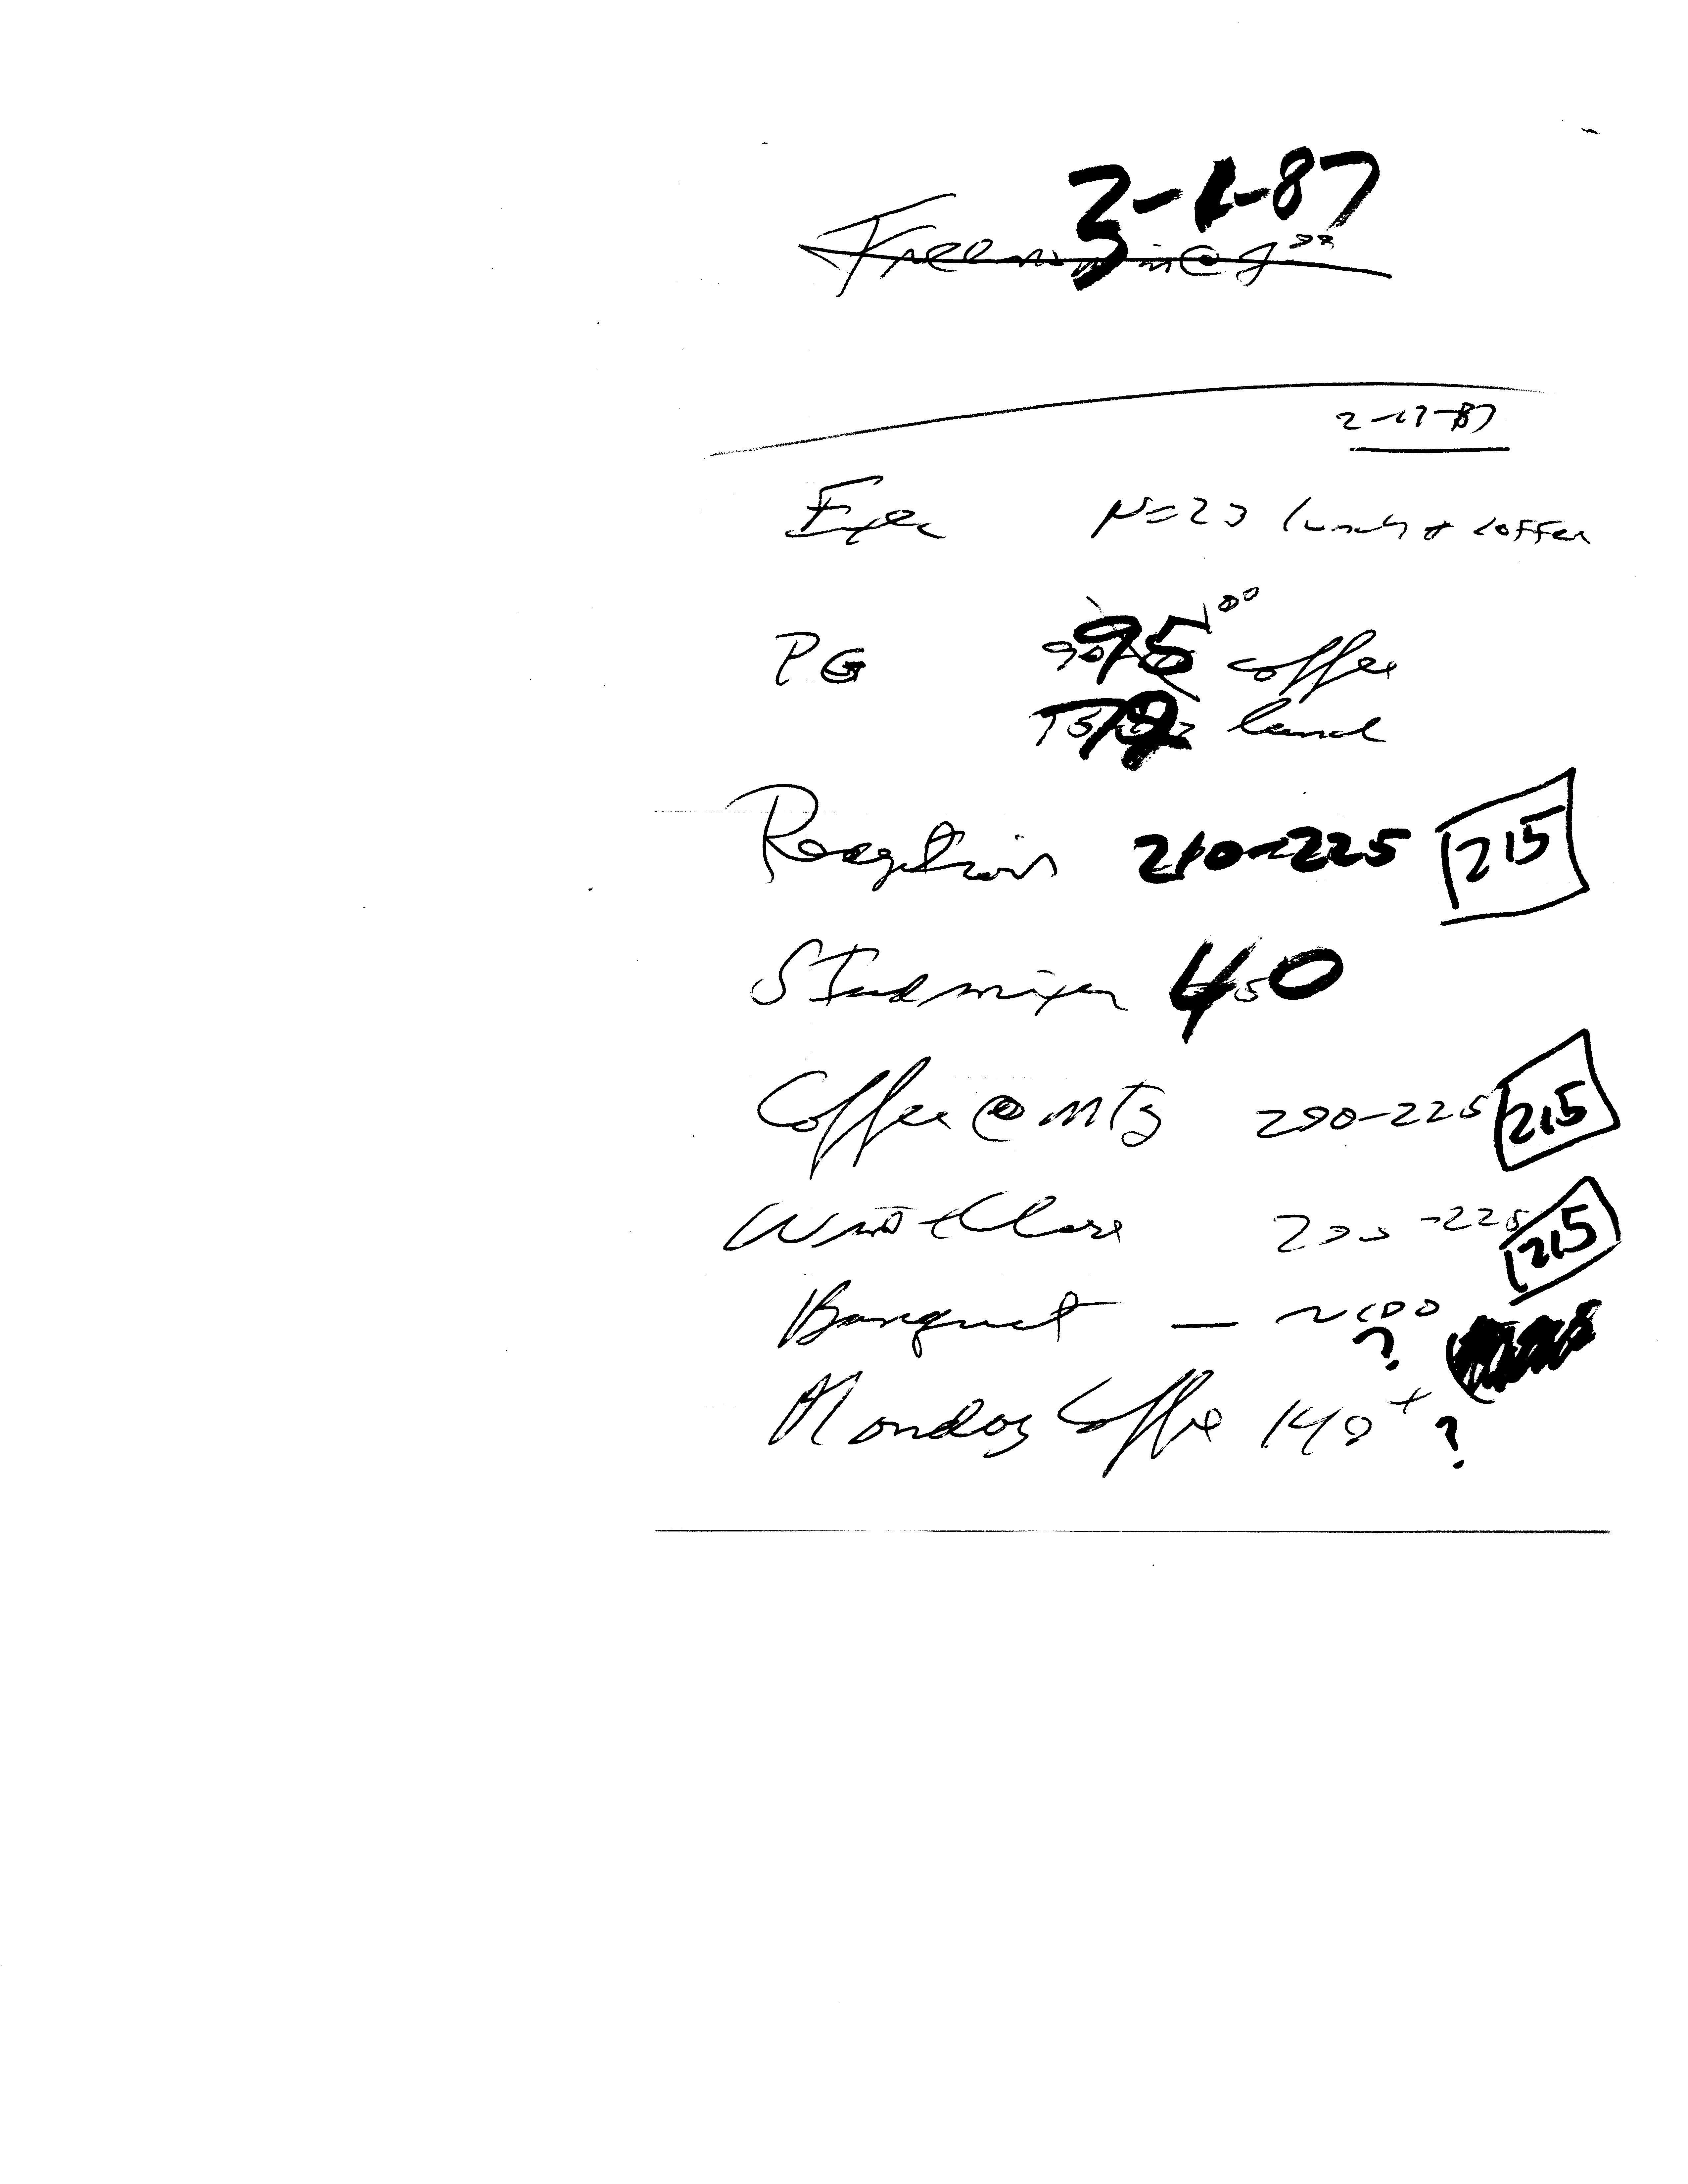 3-1-87
2-17-87
Exec N=23 lunch + coffee
PG 95 coffee
72 lunch
Reception 210-225 215
Stud mixer 40
Coffee @ mtg 200-225 215
Wine + Cheese 200-225 215
Banquet — ~100 ?
Monday Coffee 140+ ?